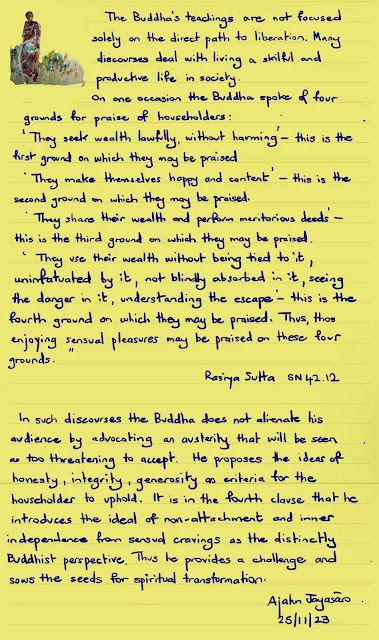 The Buddha's teachings are not focused
solely on the direct path to liberation. Many
discourses deal with living a skilful and
productive life in society.
On one occasion the Buddha spoke of four
grounds for praise of householders:
'They seek wealth lawfully, without harming' – this is the
first ground on which they may be praised
'They make themselves happy and content' – this is the
second ground on which they may be praised.
'They share their wealth and perform meritorious deeds' –
this is the third ground on which they may be praised.
'They use their wealth without being tied to it,
uninfatuated by it, not blindly absorbed in it, seeing
the danger in it, understanding the escape' – this is the
fourth ground on which they may be praised. Thus, those
enjoying sensual pleasures may be praised on these four
grounds."
Rasiya Sutta SN 42.12
In such discourses the Buddha does not alienate his
audience by advocating an austerity that will be seen
as too threatening to accept. He proposes the ideas of
honesty, integrity, generosity as criteria for the
householder to uphold. It is in the fourth clause that he
introduces the ideal of non-attachment and inner
independence from sensual cravings as the distinctly
Buddhist perspective. Thus he provides a challenge and
sows the seeds for spiritual transformation.
Ajahn Jayasāro
25/11/23